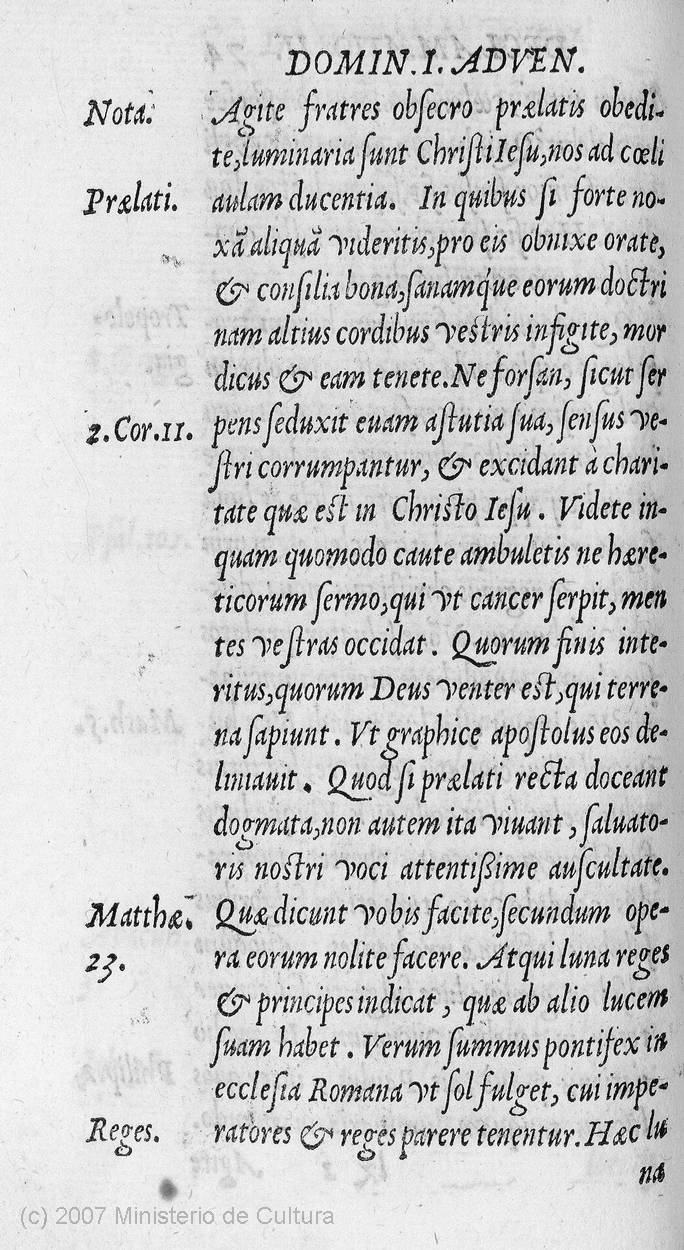 DOMIN. I. ADVEN.
Nota. Agite fratres obſecro prælatis obedi-
te, luminaria ſunt Chriſti Ieſu, nos ad cœli
Prælati. aulam ducentia. In quibus ſi forte no-
xā aliquā videritis, pro eis obnixe orate,
& conſilia bona, ſanamq́ue eorum doctri
nam altius cordibus veſtris infigite, mor
dicus & eam tenete. Ne forſan, ſicut ſer
2. Cor. 11. pens ſeduxit euam aſtutia ſua, ſenſus ve-
ſtri corrumpantur, & excidant à chari-
tate quæ eſt in Chriſto Ieſu. Videte in-
quam quomodo caute ambuletis ne hære-
ticorum ſermo, qui vt cancer ſerpit, men
tes veſtras occidat. Quorum finis inte-
ritus, quorum Deus venter eſt, qui terre-
na ſapiunt. Vt graphice apoſtolus eos de-
liniauit. Quod ſi prælati recta doceant
dogmata, non autem ita viuant, ſaluato-
ris noſtri voci attentißime auſcultate.
Matthæ. Quæ dicunt vobis facite, ſecundum ope-
23. ra eorum nolite facere. Atqui luna reges
& principes indicat, quæ ab alio lucem
ſuam habet. Verum ſummus pontifex in
eccleſia Romana vt ſol fulget, cui impe-
Reges. ratores & reges parere tenentur. Hæc lu
na
(c) 2007 Ministerio de Cultura